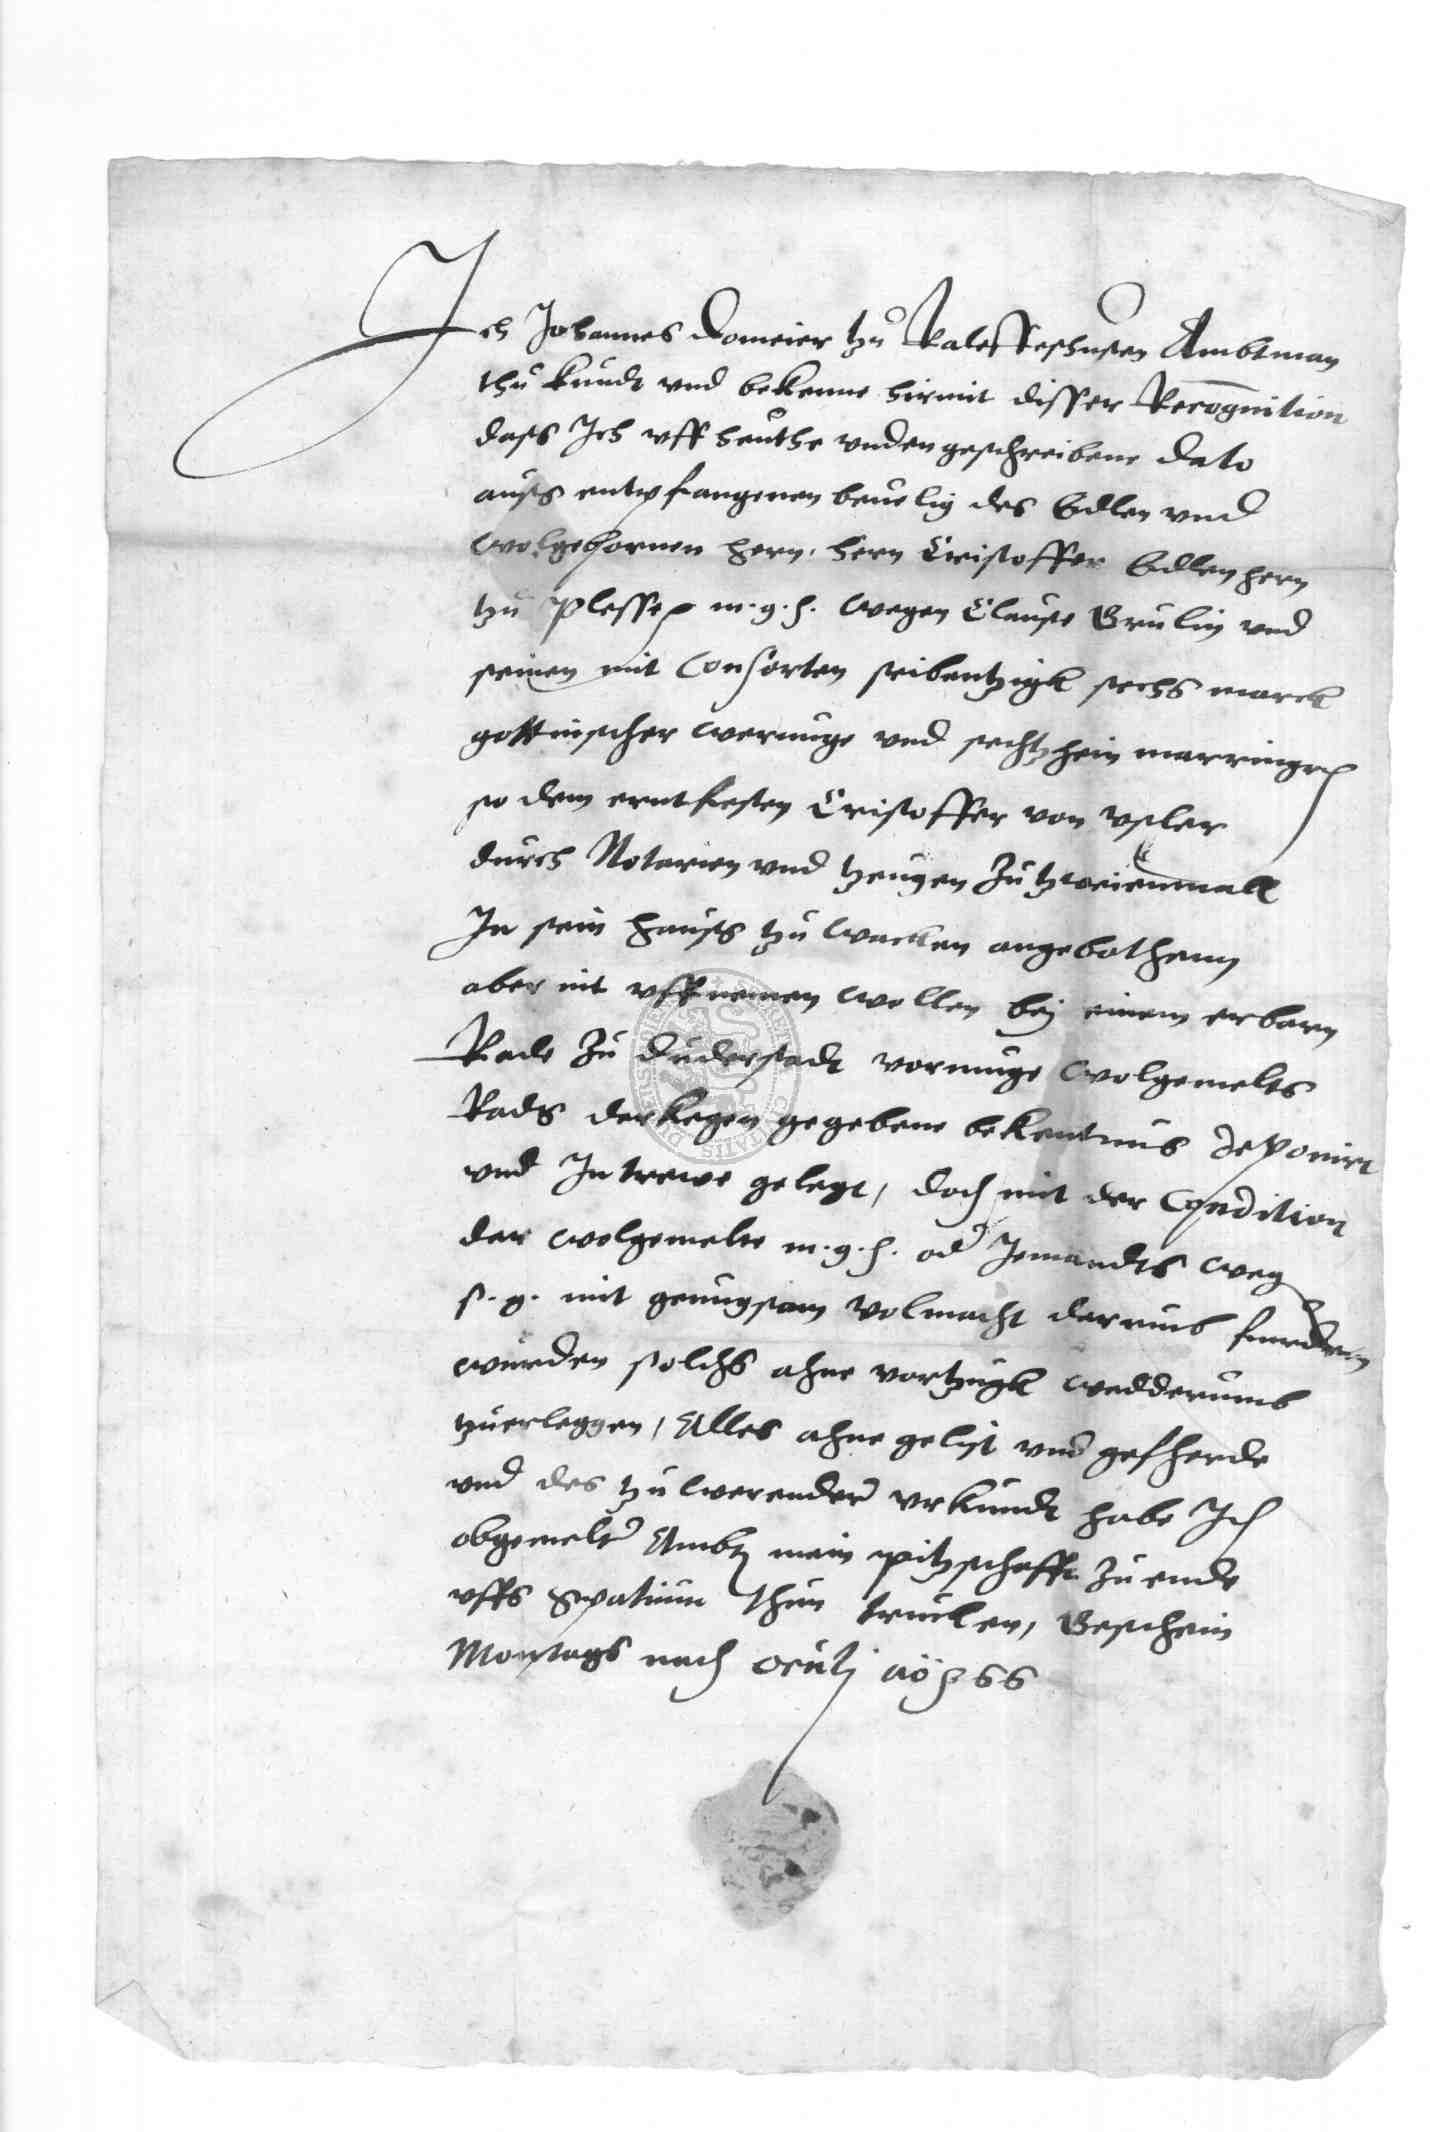 Ich Johannes Domeier tzu Raleffeshusen Ambtman
thu kundt vnd bekenne hirmit disser Recognition
dass Ich vff heuthe vndengeschreibene dato
auss entpfangenen beuelig des Edlen vnd
wolgebornen hern, hern Cristoffer Edlen hern
tzu Plesse m. g. h. wegen Clause Grulin vnd
seinen mit Consorten seibentzigk sechs marck
gottinischer werunge vnd sechtzhein marringrs
so dem erntfesten Cristoffer von Vsler
durch Notarien vnd tzeugen Zu tzweienmall
In sein hauss tzu Wacken angebothenn
aber nit vffnemen wollen bej einem erbarn
Rade Zu Duderstadt vormuge wolgemelts
Rads derkegen gegebene bekentnus deponirt
vnd In trewe gelegt, doch mit der Condition
dar wolgemelte m. g. h. oder Jemandts weg
s. g. mit genugsam Volmacht darumb furdern
wurden solchs ahne vortzugk wedderumb
tzuerleggen, Alles ahne gelist vnd gefherde
vnd des tzu werender vrkundt habe Ich
obgemelter Ambt mein pitzschafft Zu ende
vffs Spatium thun trucken, Geschein
Montags nach oculi ao 66